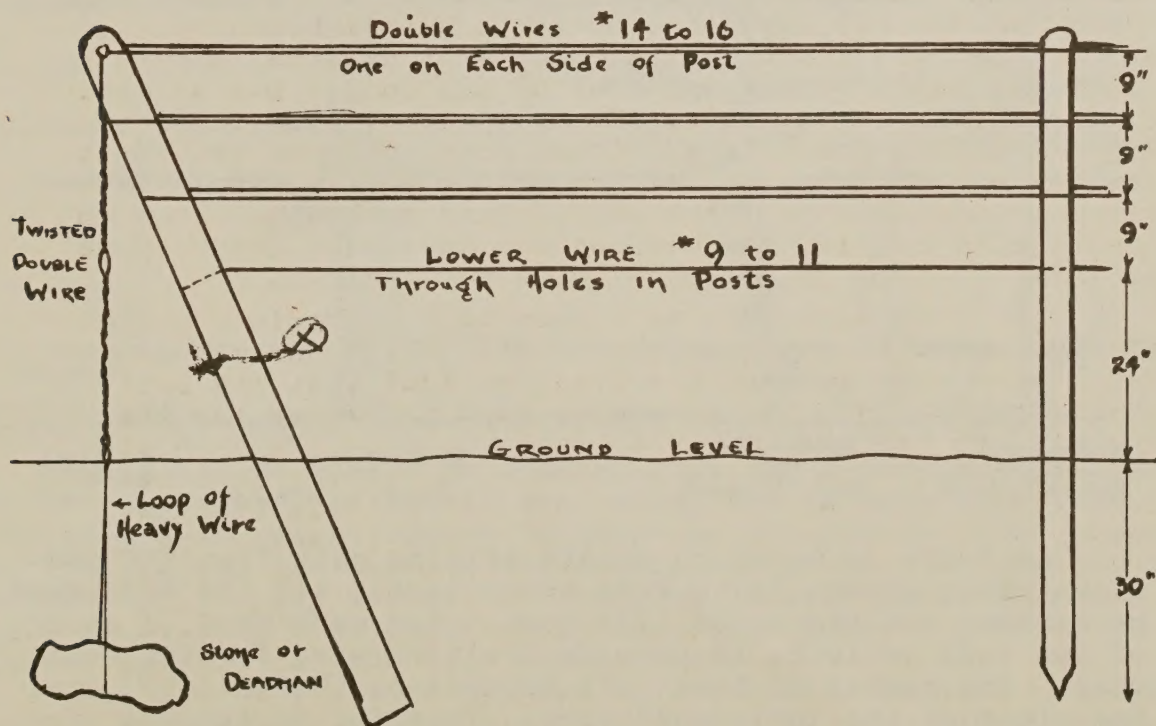 Double Wires #14 to 16
One on Each Side of Post
9"
9"
TWISTED
DOUBLE
WIRE
9"
LOWER WIRE #9 to 11
Through Holes in Posts
X
24"
GROUND LEVEL
← Loop of
Heavy Wire
30"
Stone or
DEADMAN